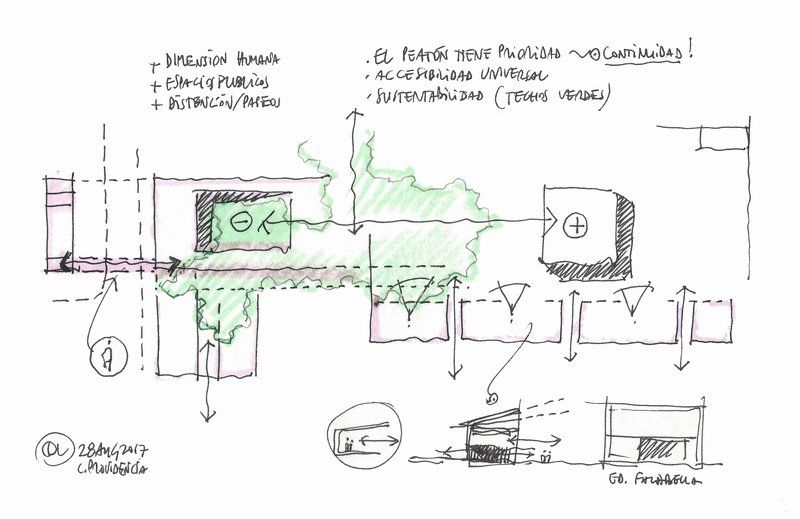 + DIMENSION HUMANA
+ ESPACIOS PUBLICOS
+ DISTENCIÓN/PASEOS
. EL PEATÓN TIENE PRIORIDAD CONTINUIDAD!
. ACCESIBILIDAD UNIVERSAL
. SUSTENTABILIDAD (TECHOS VERDES)
-
+
28AUG2017
C. PROVIDENCIA
ED. FALABELLA